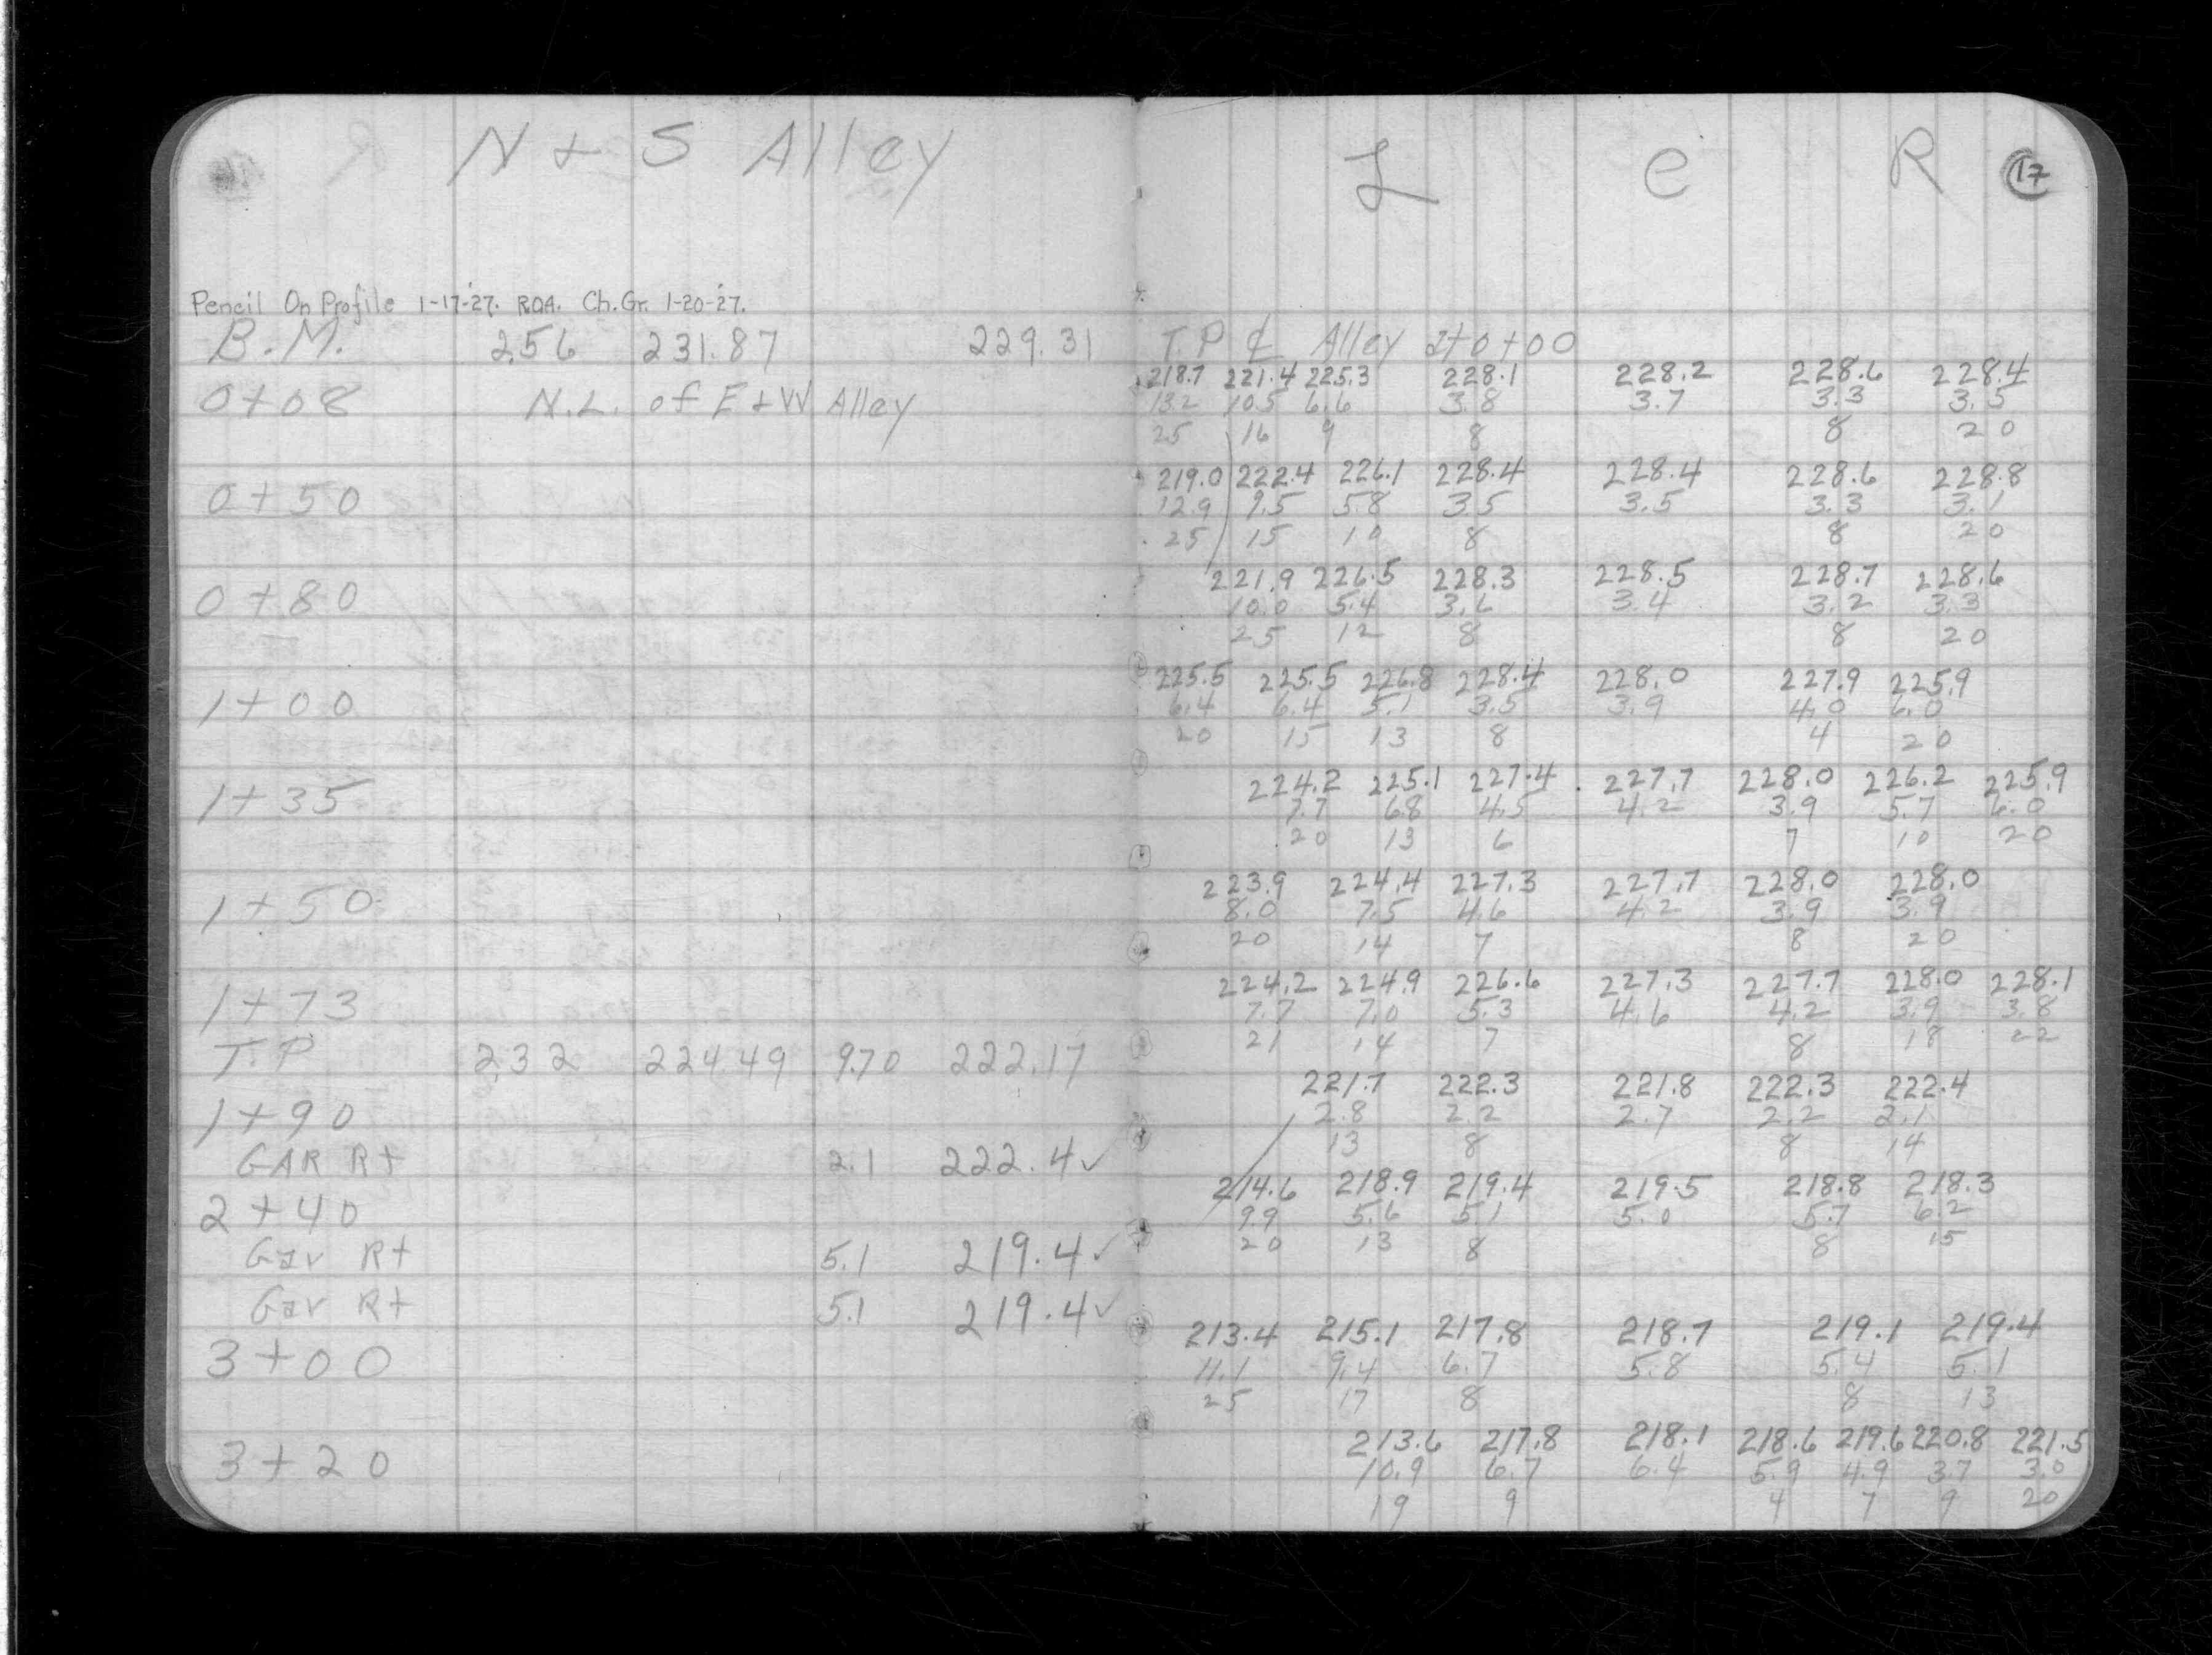 N + S Alley L C R 17
Pencil On Profile 1-17-'27. ROA. Ch.Gr. 1-20-'27.
B.M. 2.56 231.87 229.31 T.P ⅊ Alley at 0+00
218.7 221.4 225.3 228.1 228.2 228.6 228.4
0+08 N.L. of E+W Alley 13.2 10.5 6.6 3.8 3.7 3.3 3.5
25 16 9 8 8 20
219.0 222.4 226.1 228.4 228.4 228.6 228.8
0+50 12.9 9.5 5.8 3.5 3.5 3.3 3.1
25 15 10 8 8 20
221.9 226.5 228.3 228.5 228.7 228.6
0+80 10.0 5.4 3.6 3.4 3.2 3.3
25 12 8 8 20
225.5 225.5 226.8 228.4 228.0 227.9 225.9
1+00 6.4 6.4 5.1 3.5 3.9 4.0 6.0
20 15 13 8 4 20
224.2 225.1 227.4 227.7 228.0 226.2 225.9
1+35 7.7 6.8 4.5 4.2 3.9 5.7 6.0
20 13 6 7 10 20
223.9 224.4 227.3 227.7 228.0 228.0
1+50 8.0 7.5 4.6 4.2 3.9 3.9
20 14 7 8 20
224.2 224.9 226.6 227.3 227.7 228.0 228.1
1+73 7.7 7.0 5.3 4.6 4.2 3.9 3.8
21 14 7 8 18 22
T.P 2.32 224.49 9.70 222.17
221.7 222.3 221.8 222.3 222.4
1+90 2.8 2.2 2.7 2.2 2.1
13 8 8 14
GAR Rt 2.1 222.4✓
214.6 218.9 219.4 219.5 218.8 218.3
2+40 9.9 5.6 5.1 5.0 5.7 6.2
20 13 8 8 15
Gar Rt 5.1 219.4✓
Gar Rt 5.1 219.4✓
213.4 215.1 217.8 218.7 219.1 219.4
3+00 11.1 9.4 6.7 5.8 5.4 5.1
25 17 8 8 13
213.6 217.8 218.1 218.6 219.6 220.8 221.5
3+20 10.9 6.7 6.4 5.9 4.9 3.7 3.0
19 9 4 7 9 20